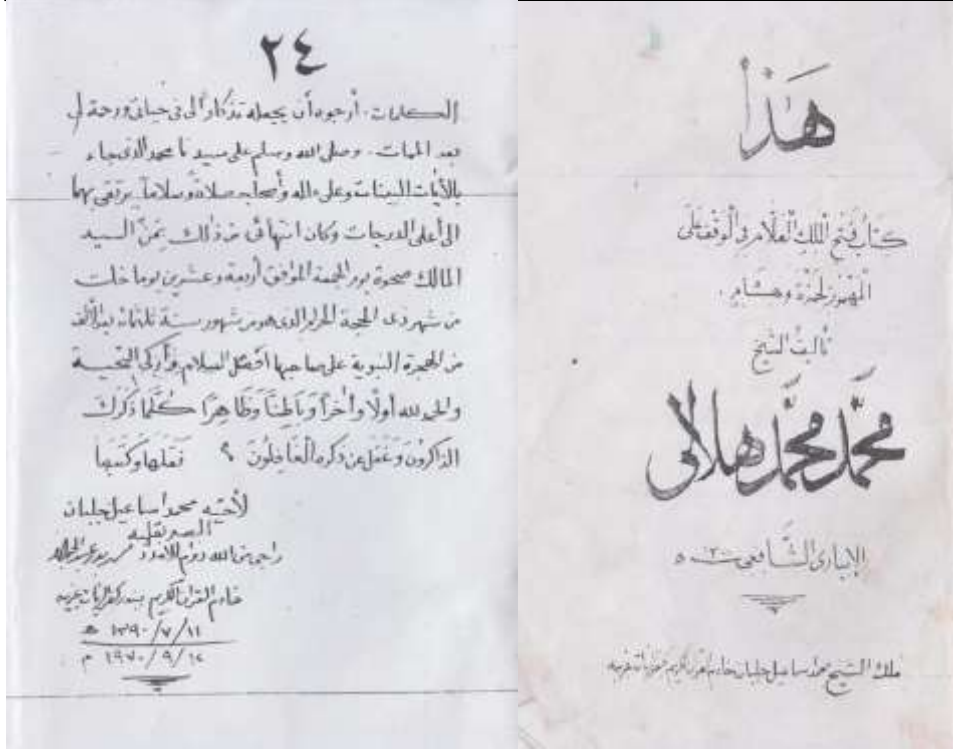 هَذَا
كتاب فتح الملك العلام في الوقف على
المهموز لحمزة وهشام.
تأليف الشيخ
محمد محمد هلالي
الإبياري الشافعي
ملك الشيخ محمد اسماعيل جلبان خادم القرآن الكريم غربيه
٢٤
الكلمات. أرجوه أن يجعله تذكاراً لى فى حياتى ورحمة لى
بعد الممات. وصلى الله وسلم على سيدنا محمد الذى جاء
بالأيات البينات وعلى اله وأصحابه صلاة وسلاماً يرتقى بهما
الى أعلى الدرجات وكان انتهائى من ذلك بمَنِّ السيد
المالك ضحوة يوم الجمعة الموفق أربعة وعشرين يوما خلت
من شهر ذى الحجة الحرام الذى هو من شهور سنة ثلثمائه بعد الألف
من الهجرة النبوية على صاحبها افضل السلام وأزكى التحية
والحمد لله أولًا وأخراً وَبَاطِنًا وَظَاهِرًا كُلَّمَا ذَكَرَكَ
الذاكرون وَغَفَل عن ذكره الْغَافِلُونَ ؟ نقلها وكتبها
لأخيه محمد اسماعيل جلبان
راجى من الله دوام
خادم القرآن الكريم
١٣٩٠/٧/١١ هـ
١٩٧٠/٩/١٢ م